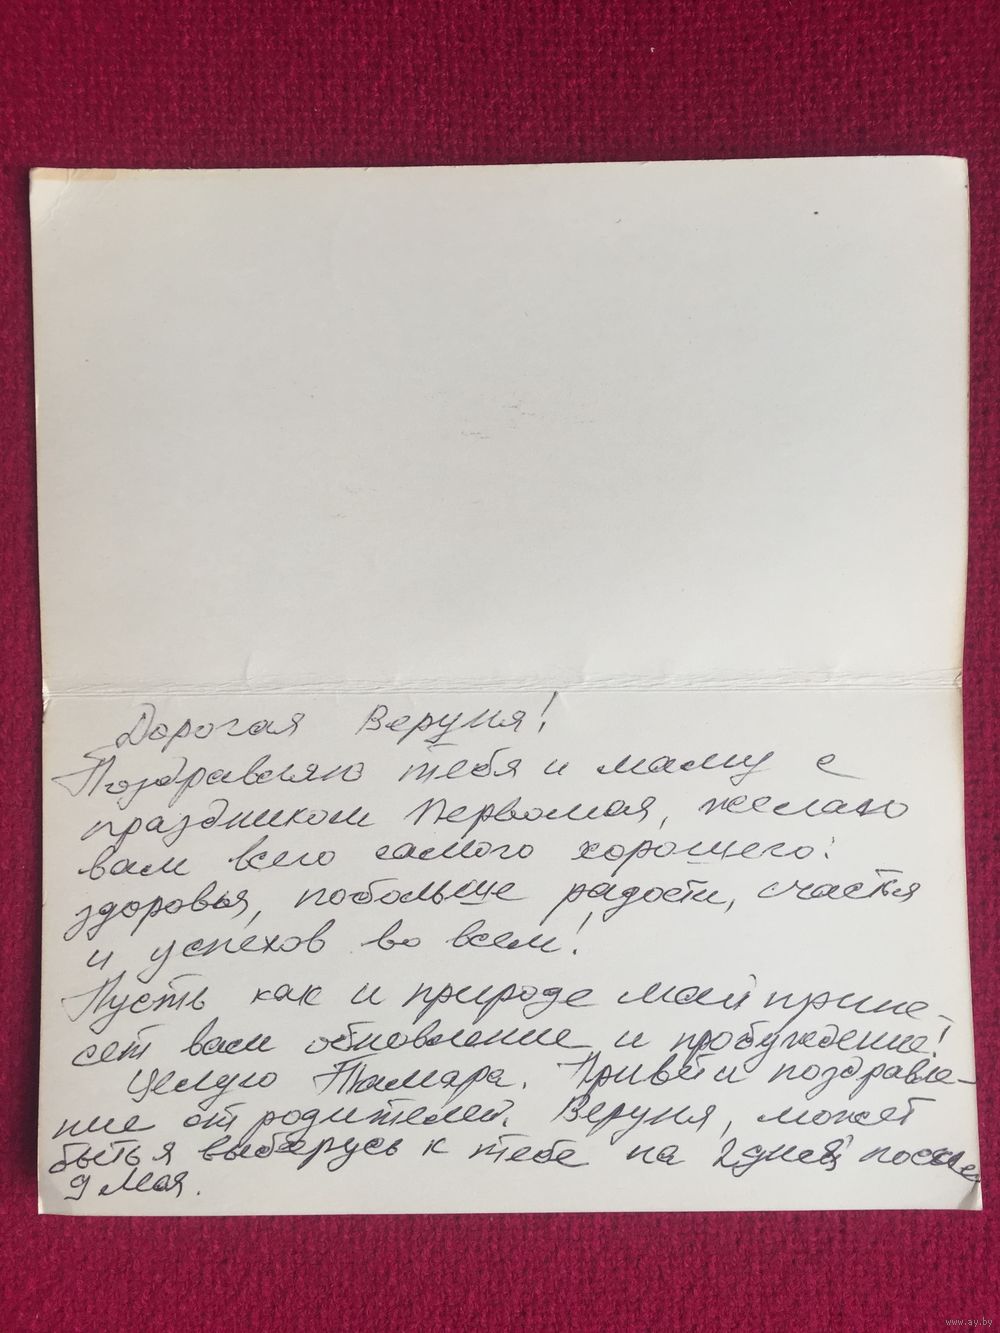 Дорогая Веруня!
Поздравляю тебя и маму с
праздником Первомая, желаю
вам всего самого хорошего:
здоровья, побольше радости, счастья
и успехов во всем!
Пусть как и природе май прине-
сет вам обновление и пробуждение!
Целую Тамара. Привет и поздравле-
ние от родителей. Веруня, может
быть я выберусь к тебе на 2 дня после
9 мая.
www.ay.by